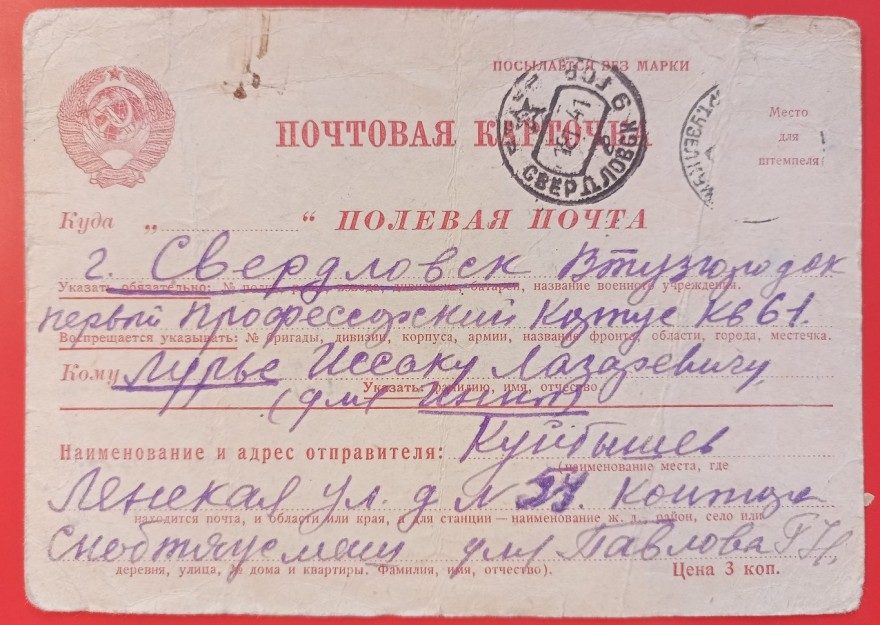 ПОСЫЛАЕТСЯ БЕЗ МАРКИ
ПОЧТОВАЯ КАРТОЧКА
Место
для
штемпеля
СВЕРДЛОВСК 9
41
Куда „ “ ПОЛЕВАЯ ПОЧТА
г. Свердловск Втузгородок
Указать обязательно: № батареи, название военного учреждения.
первый Профессорский Корпус Кв 61.
Воспрещается указывать: № бригады, дивизии, корпуса, армии, название фронта, области, города, местечка.
Кому Лурье Иссаку Лазаревичу
Указать: фамилию, имя, отчество
(для
Наименование и адрес отправителя: Куйбышев
(наименование места, где
Ленская ул. д № 54.
находится почта, и области или края, а для станции — наименование ж. д., район, село или
для Павлова Г Н.
деревня, улица, № дома и квартиры. Фамилия, имя, отчество).
Цена 3 коп.